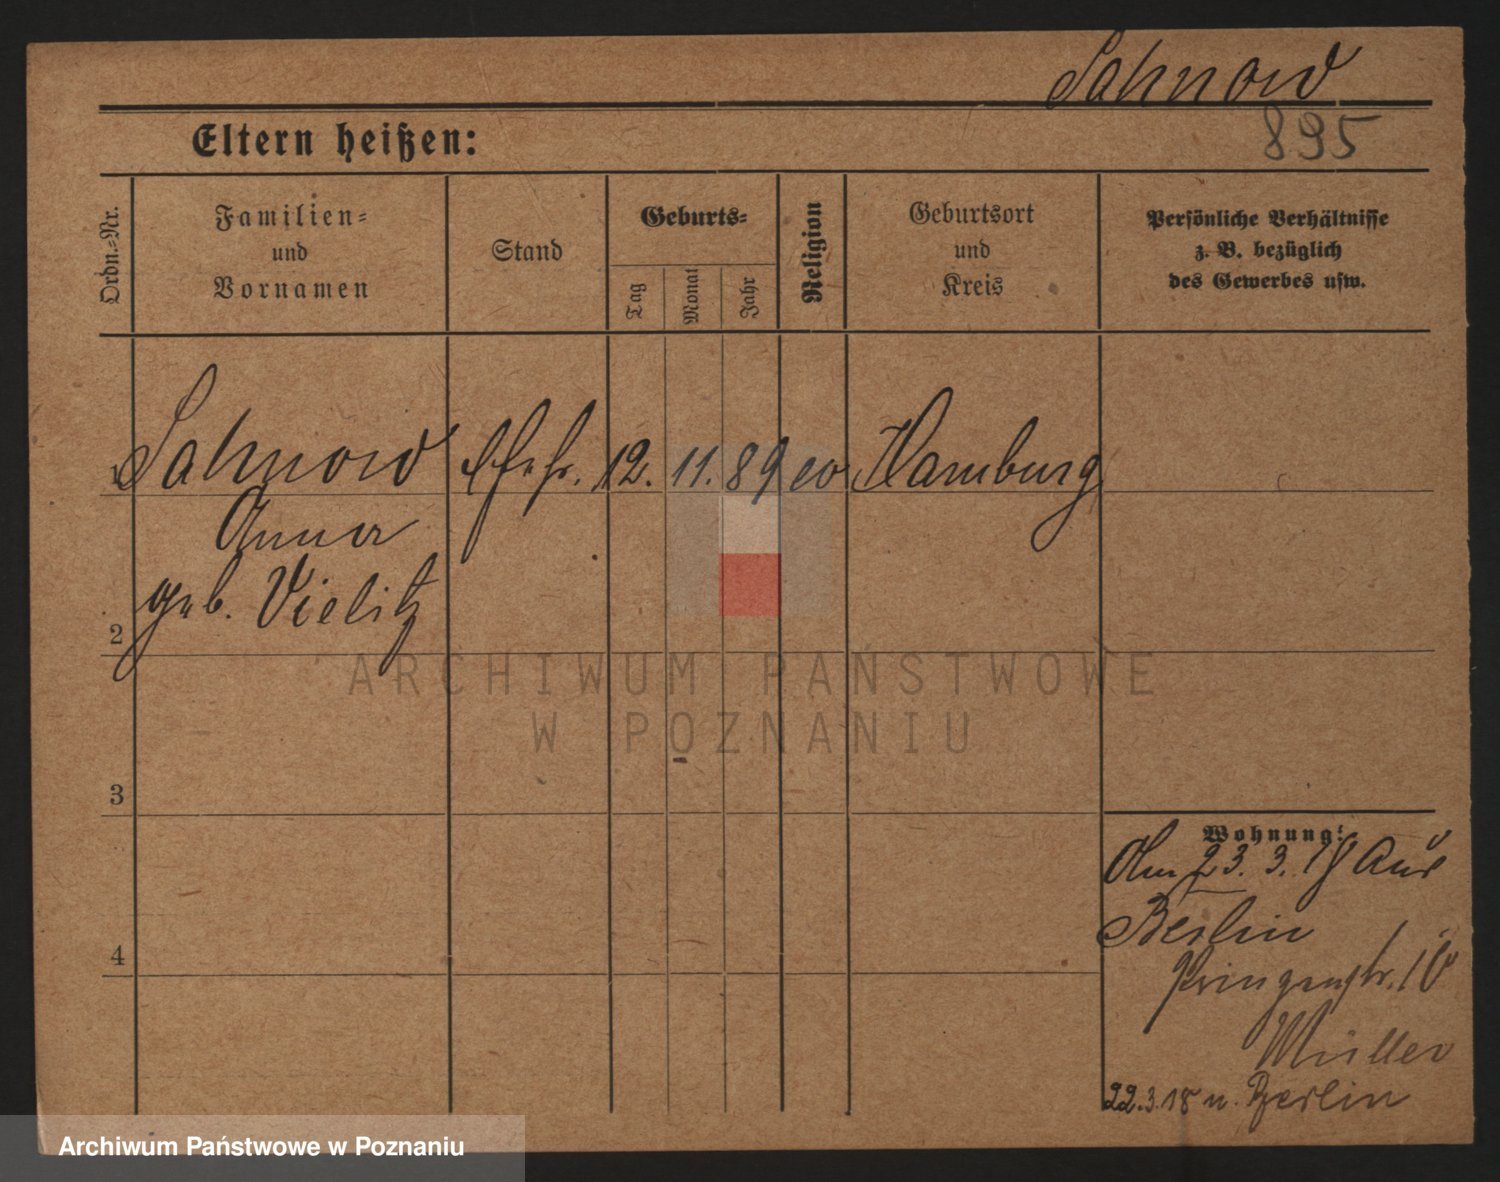 Sahnow
895
Eltern heißen:
Ordn.-Nr.
Familien-
und
Vornamen
Stand
Geburts-
Tag
Monat
Jahr
Religion
Geburtsort
und
Kreis
Persönliche Verhältnisse
z. B. bezüglich
des Gewerbes usw.
1 Sahnow Ehefr. 12. 11. 89 ev Hamburg
Anna
geb. Vielitz
2
3
4
Wohnung:
23. 3. 18 aus
Berlin
Müller
22.3.18 n. Berlin
ARCHIWUM PAŃSTWOWE
W POZNANIU
Archiwum Państwowe w Poznaniu